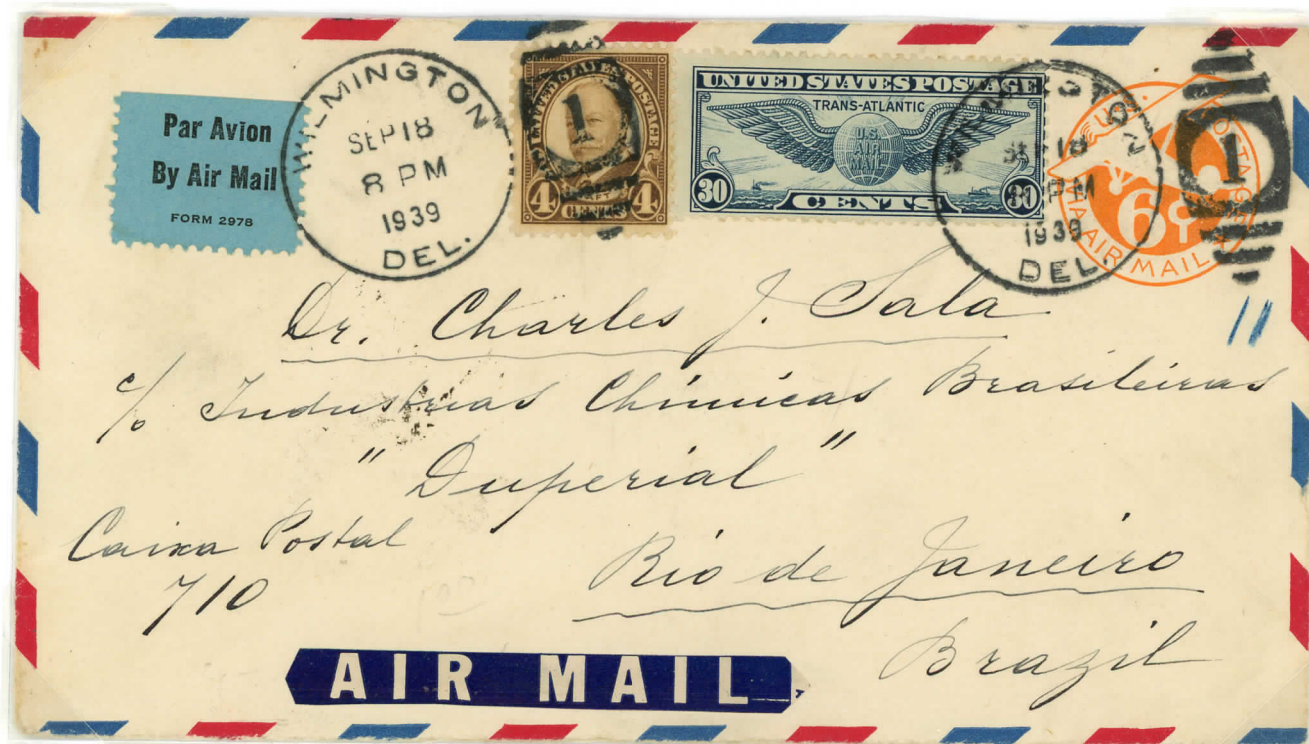 Par Avion
By Air Mail
FORM 2978
WILMINGTON
SEP 18
8 PM
1939
DEL.
UNITED STATES POSTAGE
1
4 CENTS 4
UNITED STATES POSTAGE
TRANS-ATLANTIC
U.S.
AIR
MAIL
30 CENTS 30
WILMINGTON
SEP 18
8 PM
1939
DEL.
1
6¢
AIR MAIL
11
Dr. Charles J. Sala
c/o Industrias Chimicas Brasileiras
"Duperial"
Caixa Postal
710
Rio de Janeiro
Brazil
AIR MAIL